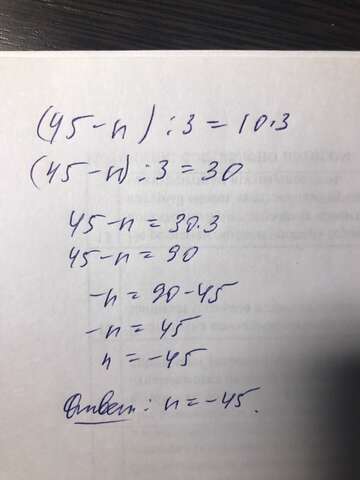 (45-n) : 3 = 10·3
(45-n) : 3 = 30
45-n = 30·3
45-n = 90
-n = 90-45
-n = 45
n = -45
Ответ: n = -45.